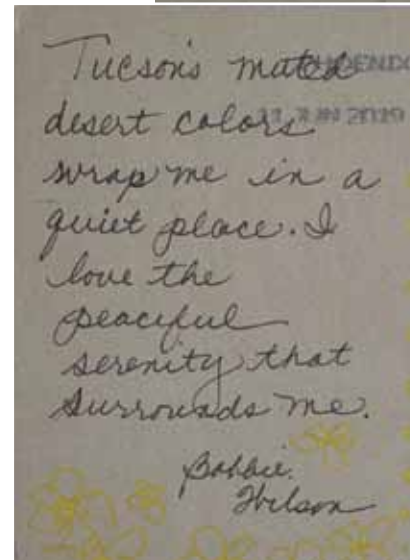 Tucson's muted PHOENIX
desert colors 11 JUN 2019
wrap me in a
quiet place. I
love the
peaceful
serenity that
surrounds me.
Bobbie
Wilson